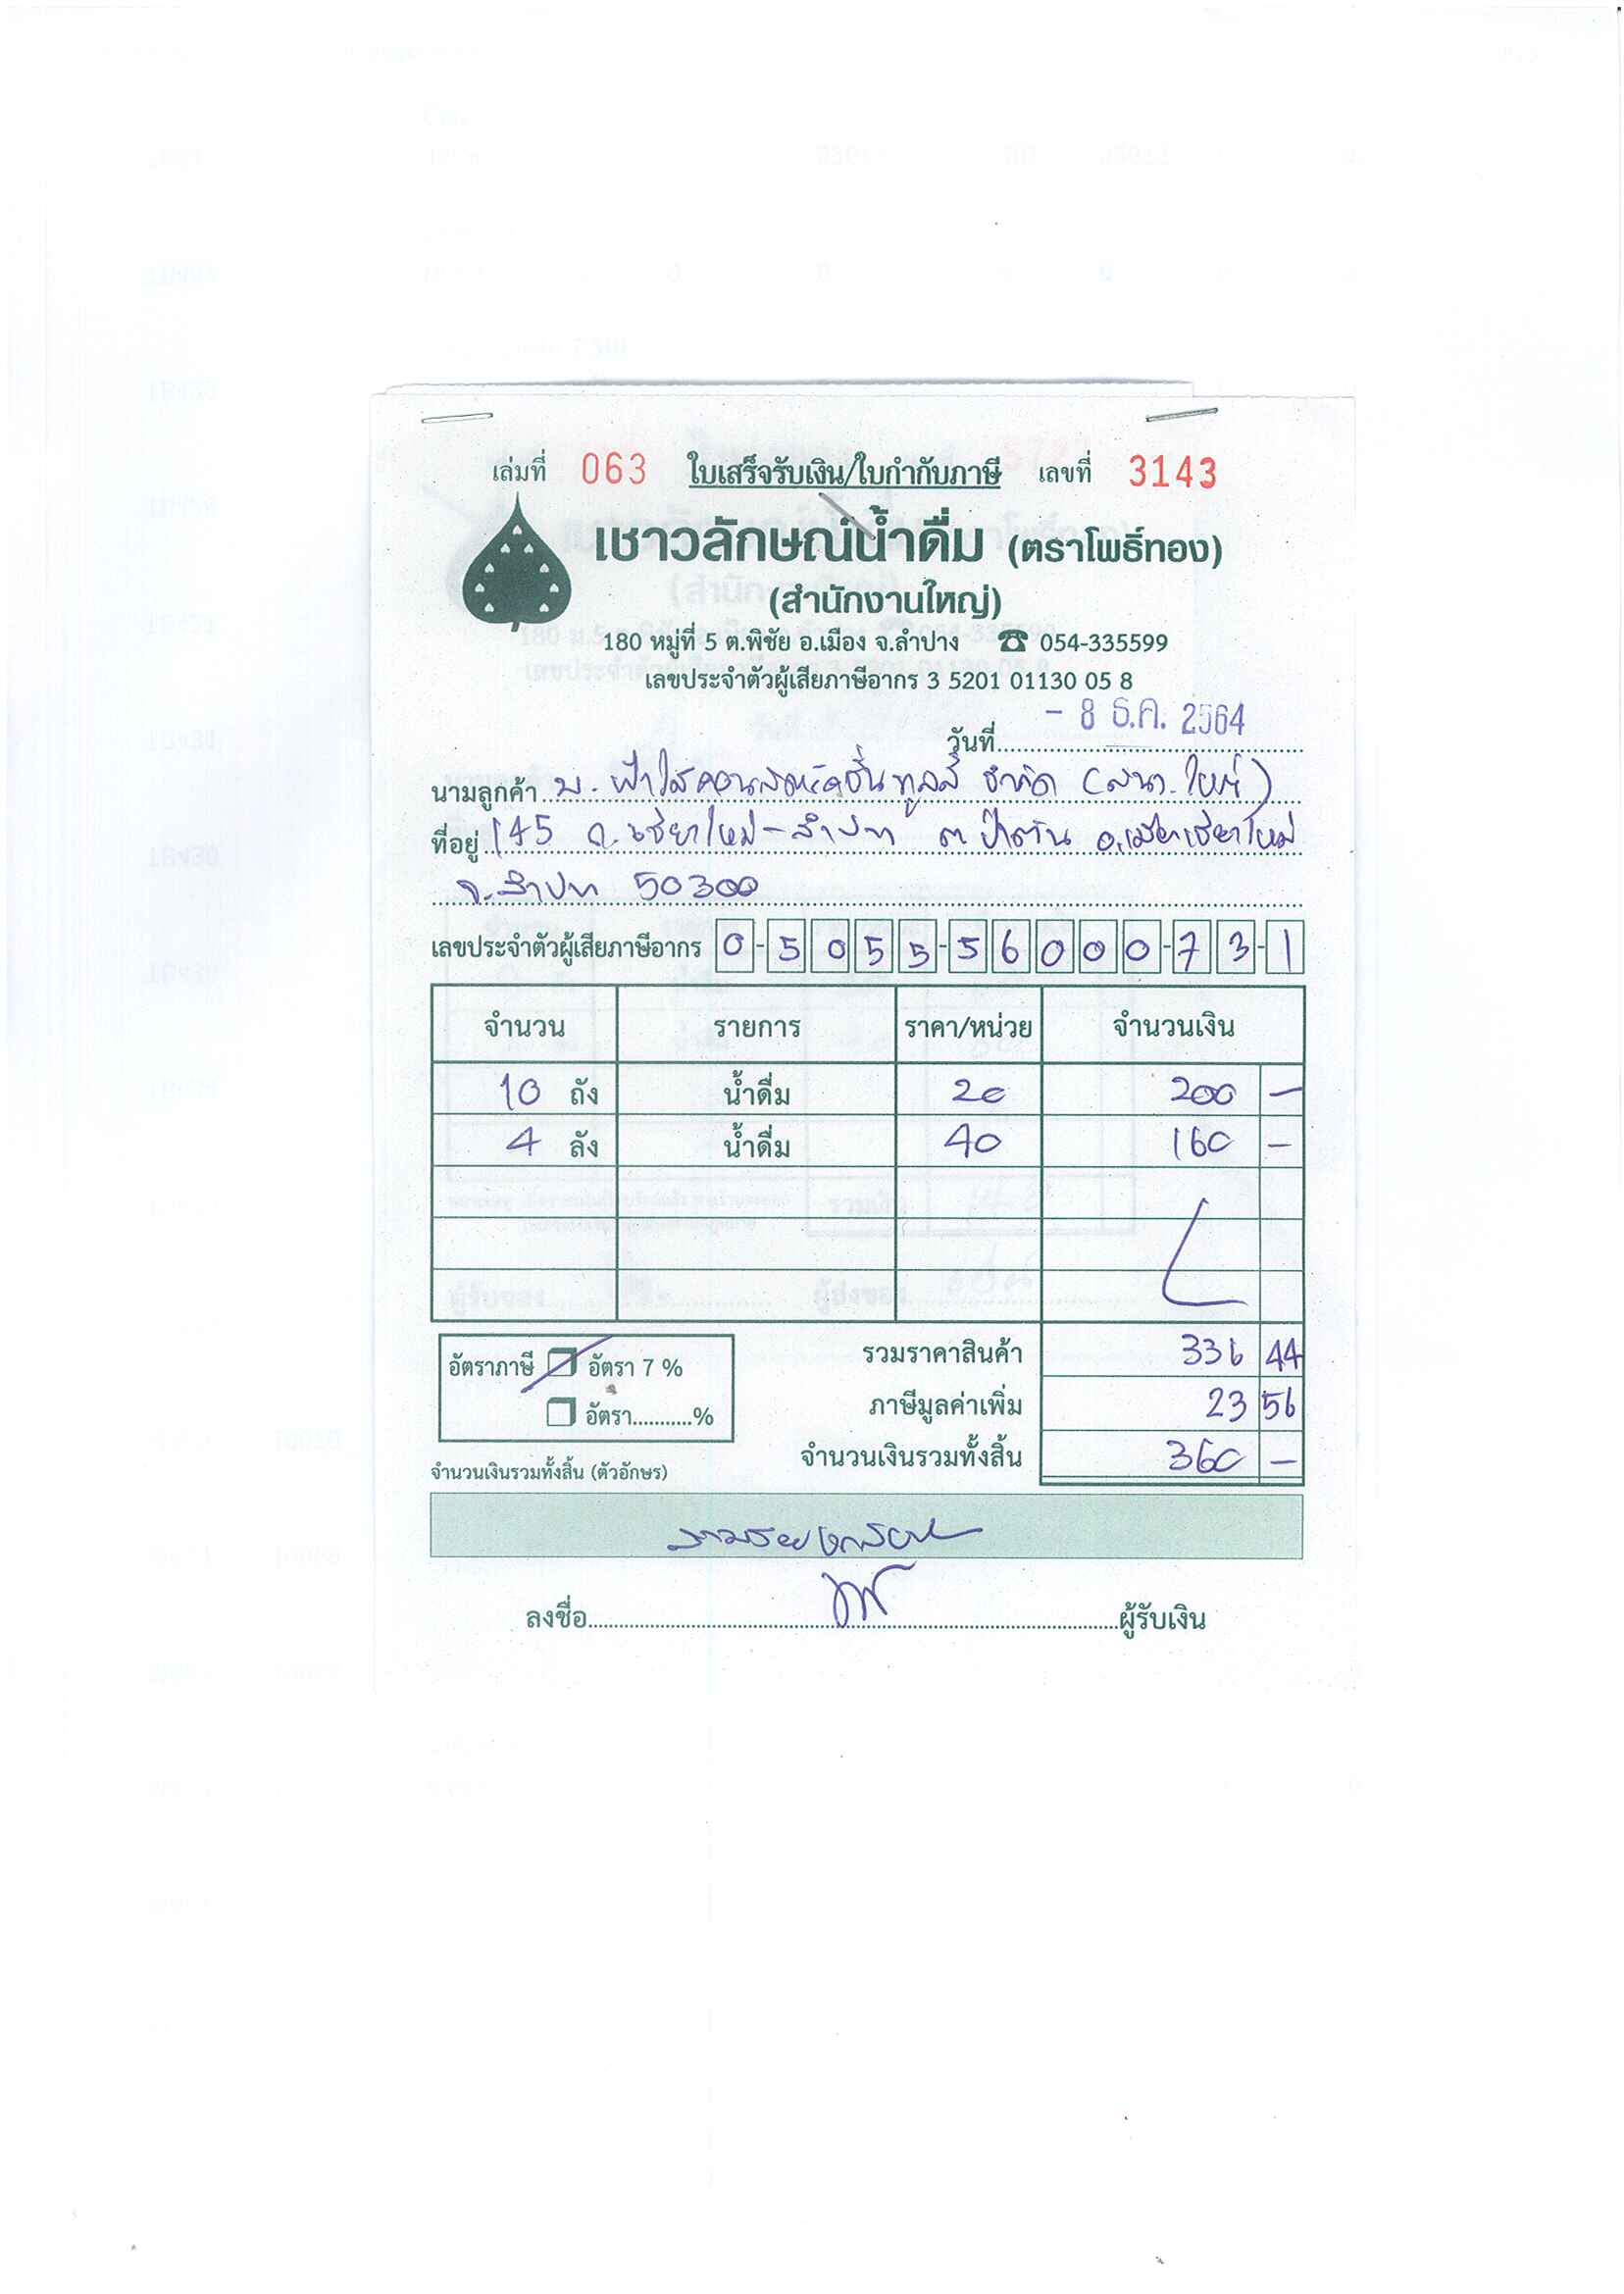 เล่มที่ 063 ใบเสร็จรับเงิน/ใบกำกับภาษี เลขที่ 3143
เชาวลักษณ์น้ำดื่ม (ตราโพธิ์ทอง)
(สำนักงานใหญ่)
180 หมู่ที่ 5 ต.พิชัย อ.เมือง จ.ลำปาง ☎ 054-335599
เลขประจำตัวผู้เสียภาษีอากร 3 5201 01130 05 8
วันที่ - 8 ธ.ค. 2564
นามลูกค้า บ. ฟ้าใสคอนสตรัคชั่น ทูลส์ จำกัด (สนง.ใหญ่)
ที่อยู่ 145 ถ.เชียงใหม่-ลำปาง ต.ป่าตัน อ.เมืองเชียงใหม่
จ.ลำปาง 50300
เลขประจำตัวผู้เสียภาษีอากร 0-5055-56000-73-1
จำนวน รายการ ราคา/หน่วย จำนวนเงิน
10 ถัง น้ำดื่ม 20 200 -
4 ลัง น้ำดื่ม 40 160 -
อัตราภาษี อัตรา 7 % รวมราคาสินค้า 336 44
อัตรา...........% ภาษีมูลค่าเพิ่ม 23 56
จำนวนเงินรวมทั้งสิ้น 360 -
จำนวนเงินรวมทั้งสิ้น (ตัวอักษร)
สามร้อยหกสิบบาท
ลงชื่อ ผู้รับเงิน